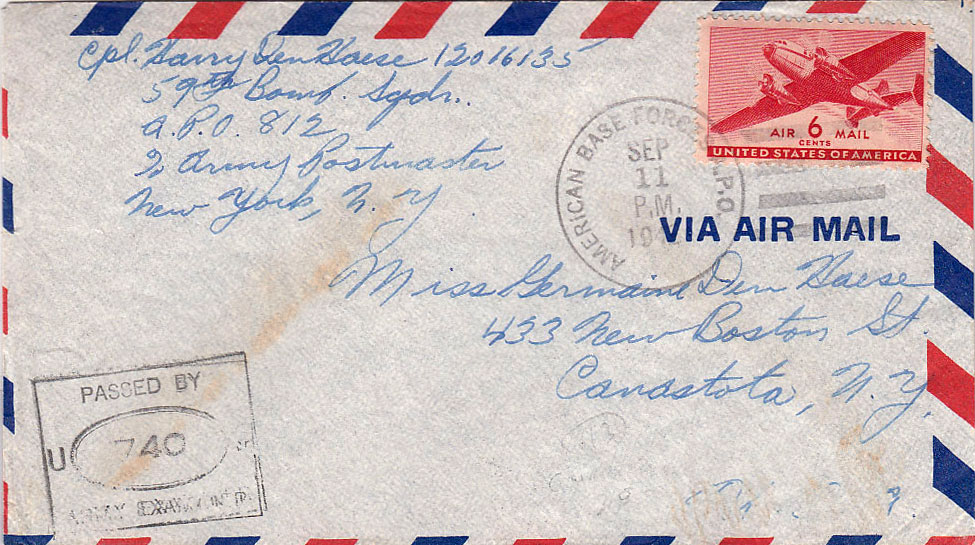 Cpl. Harry Den Haese 12016135
59th Bomb. Sqdn.
A.P.O. 812
℅ Army Postmaster
New York, N.Y.
AIR 6 MAIL
CENTS
UNITED STATES OF AMERICA
AMERICAN BASE FORCES A.P.O.
SEP
11
P.M.
VIA AIR MAIL
Miss Germaine Den Haese
433 New Boston St.
Canastota, N.Y.
PASSED BY
U 740
ARMY EXAMINER